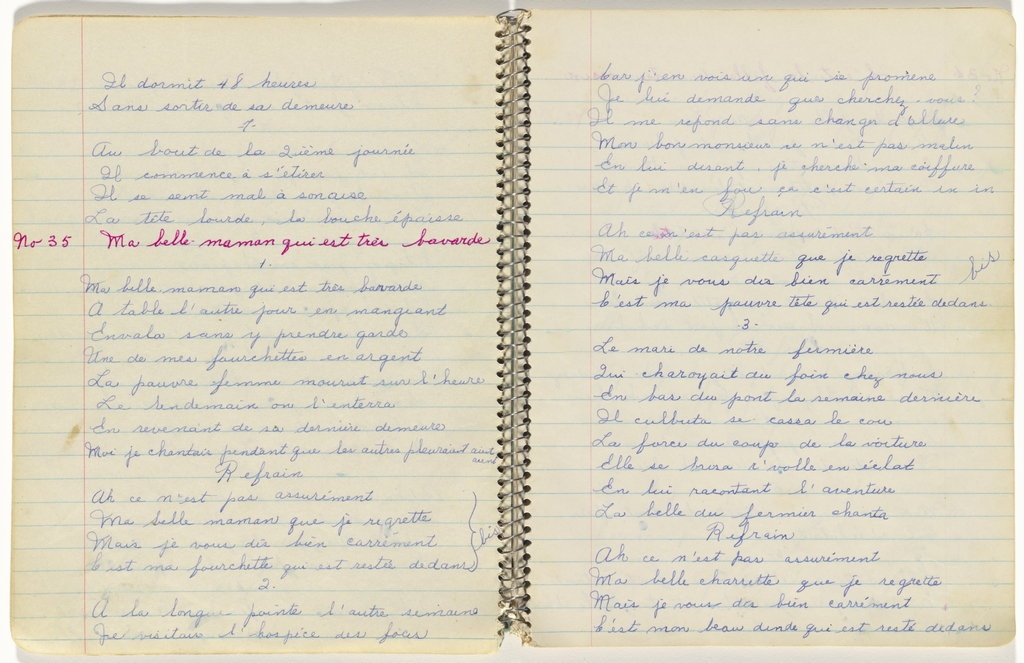 Il dormit 48 heures
Sans sortir de sa demeure
-4-
Au bout de la 2ième journée
Il commence à s'étirer
Il se sent mal à son aise
La tête lourde, la bouche épaisse
No 35 Ma belle-maman qui est très bavarde
1.
Ma belle maman qui est très bavarde
A table l'autre jour en mangeant
Envala sans y prendre garde
Une de mes fourchettes en argent
La pauvre femme mourut sur l'heure
Le lendemain on l'enterra
En revenant de sa dernière demeure
Moi je chantais pendant que les autres pleuraient
Refrain
Ah ce n'est pas assurément
Ma belle maman que je regrette
Mais je vous dis bien carrément
C'est ma fourchette qui est restée dedans
bis
2.
A la longue pointe l'autre semaine
Je visitais l'hospice des fous
Car j'en vois un qui se promène
Je lui demande que cherchez-vous?
Il me repond sans changer d'allure
Mon bon monsieur se n'est pas malin
En lui desant, je cherche ma coiffure
Et je m'en fou ça c'est certain in in
Refrain
Ah ce n'est pas assurément
Ma belle casquette que je regrette
Mais je vous dis bien carrément
C'est ma pauvre tête qui est restée dedans
bis
-3-
Le mari de notre fermière
Qui charoyait du foin chez nous
En bas du pont la semaine dernière
Il culbuta se cassa le cou
La force du coup de la voiture
Elle se brisa r'volle en éclat
En lui racontant l'aventure
La belle du fermier chanta
Refrain
Ah ce n'est pas assurément
Ma belle charrette que je regrette
Mais je vous dis bien carrément
C'est mon beau dinde qui est resté dedans